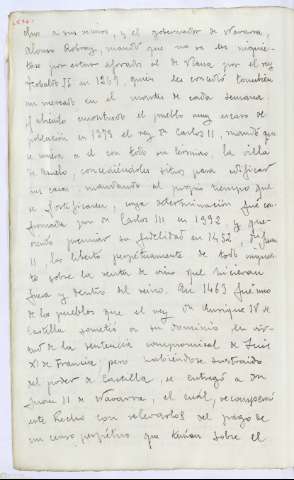 dieo a sus vecinos, y el gobernador de Navarra,
Alonso Robray, mandó que no se les inquie-
tase por estar aforado al de Viana por el rey
Teobaldo II en 1269, quien les concedió también
un mercado en el martes de cada semana.
Habiendo encontrado el pueblo muy escaso de
población en 1378 el rey Dn Carlos II, mandó que
se uniera a él con todo su termino, la villa
de concediéndoles sitios para edificar
sus casas, mandando al propio tiempo que
se fortificasen, cuya determinación fué con-
firmada por Dn Carlos III en 1392, y que-
riendo premiar su fidelidad en 1452, Dn Juan
II, los libertó perpétuamente de todo impues-
to sobre la venta de vino que hicieran
fuera y dentro del reino. En 1463 fué uno
de los pueblos que el rey Dn Enrique IV de
Castilla sometió a su dominio en vir-
tud de la sentencia compromisal de Luis
XI de Francia, pero habiéndose sustraido
del poder de Castilla, se entregó a Dn
Juan II de Navarra, el cuál, recompensó
este hecho con relevarlos del pago de
un censo perpétuo que tenían sobre el